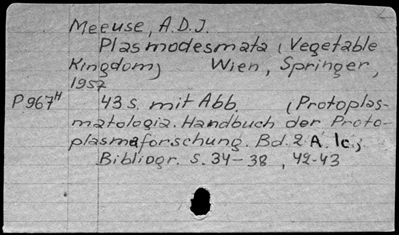 Meeuse, A.D.J.
Plasmodesmata (Vegetable
Kingdom) Wien, Springer,
1957
P967H 43 s. mit Abb. (Protoplas-
matologia. Handbuch der Proto-
plasmaforschung. Bd. 2 A. 1c;
Bibliogr. S. 34-38, 42-43